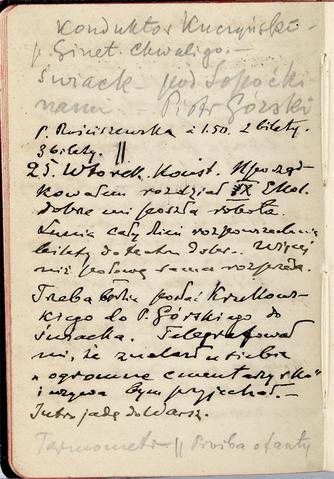 Konduktor Kuczyński -
p. Ginet. chwaligo. -
Świack - pod Sopoćki-
nami. - Piotr Górski
p. Ruściszewska à 1.50. 2 bilety.
3 bilety. ||
25. Wtorek. Konst. Uporząd-
kowałem rozdział IX Ekol.
dobrze mi poszła robota.
cały dzień rozpowszechnia
bilety do teatru dobr. Więcej
niż połowę sama rozprzeda.
Trzeba będzie posłać Krukows-
kiego do P. Górskiego do
Świacka. Telegrafował
mi, że znalazł u siebie
„ogromne cmentarzysko"
i wzywa bym przyjechał. -
Jutro jadę do Warsz.
Termometr - || Prośba o fanty